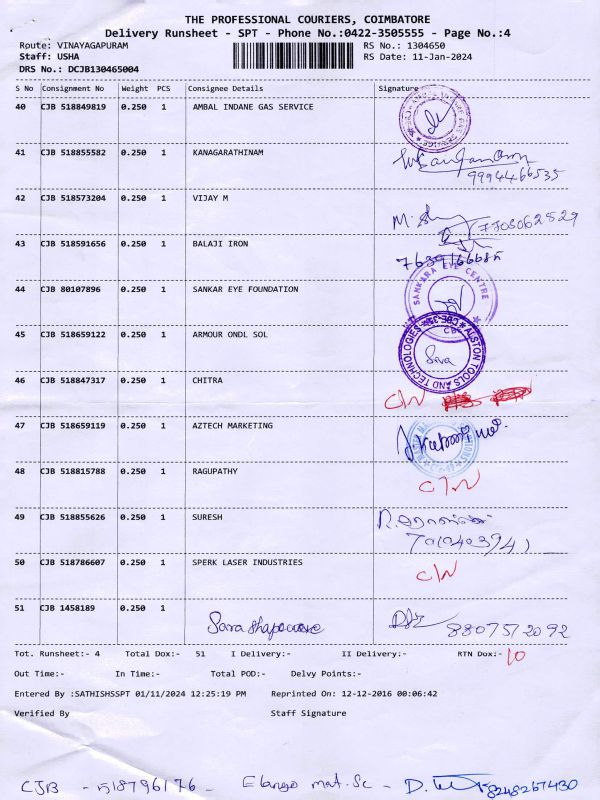 THE PROFESSIONAL COURIERS, COIMBATORE
Delivery Runsheet - SPT - Phone No.:0422-3505555 - Page No.:4
Route: VINAYAGAPURAM RS No.: 1304650
Staff: USHA RS Date: 11-Jan-2024
DRS No.: DCJB130465004
S No Consignment No Weight PCS Consignee Details Signature
40 CJB 518849819 0.250 1 AMBAL INDANE GAS SERVICE
41 CJB 518855582 0.250 1 KANAGARATHINAM
9994466535
42 CJB 518573204 0.250 1 VIJAY M
7703062529
43 CJB 518591656 0.250 1 BALAJI IRON
44 CJB 80107896 0.250 1 SANKAR EYE FOUNDATION
SANKARA EYE CENTRE
45 CJB 518659122 0.250 1 ARMOUR ONDL SOL
ALSTON TOOLS AND TECHNOLOGIES CBE-35
46 CJB 518847317 0.250 1 CHITRA
C/N
47 CJB 518659119 0.250 1 AZTECH MARKETING
48 CJB 518815788 0.250 1 RAGUPATHY
C/N
49 CJB 518855626 0.250 1 SURESH
50 CJB 518786607 0.250 1 SPERK LASER INDUSTRIES
C/N
51 CJB 1458189 0.250 1
8807572092
Tot. Runsheet:- 4 Total Dox:- 51 I Delivery:- II Delivery:- RTN Dox:- 10
Out Time:- In Time:- Total POD:- Delvy Points:-
Entered By :SATHISHSSPT 01/11/2024 12:25:19 PM Reprinted On: 12-12-2016 00:06:42
Verified By Staff Signature
CJB - 518796176 - Elango mat. Sc - 8248267430